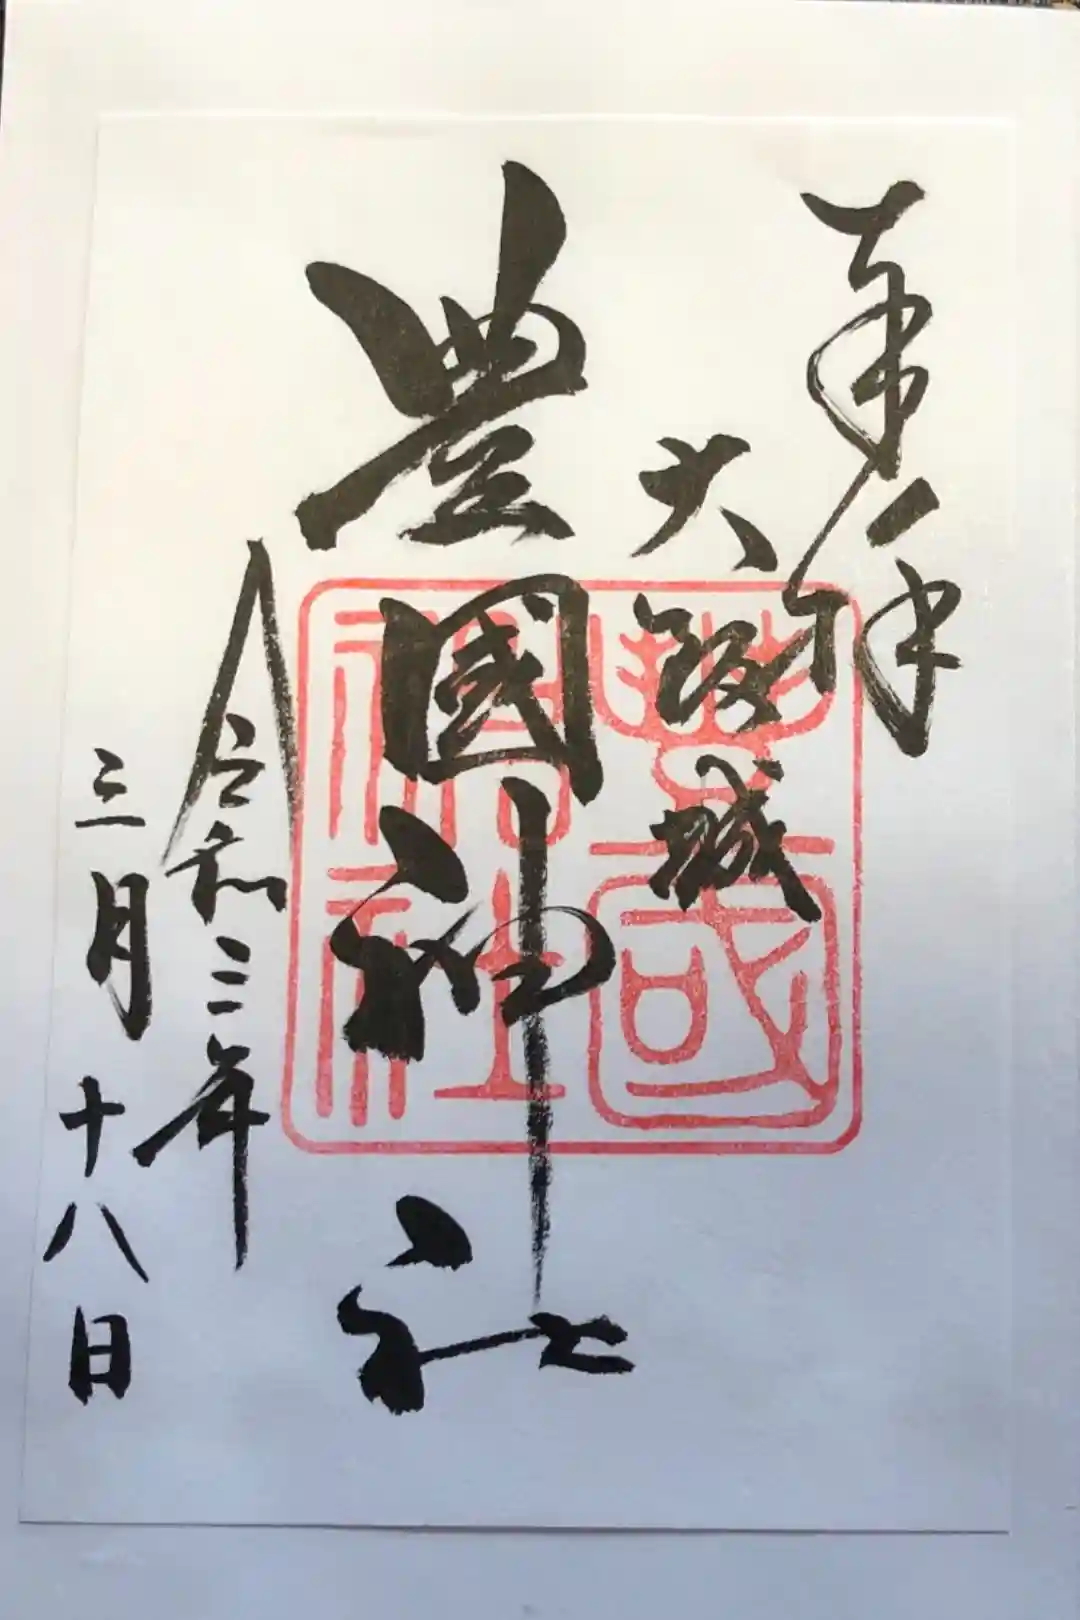 奉拝
大阪城
豊國神社
令和三年
三月十八日
豊國
神社